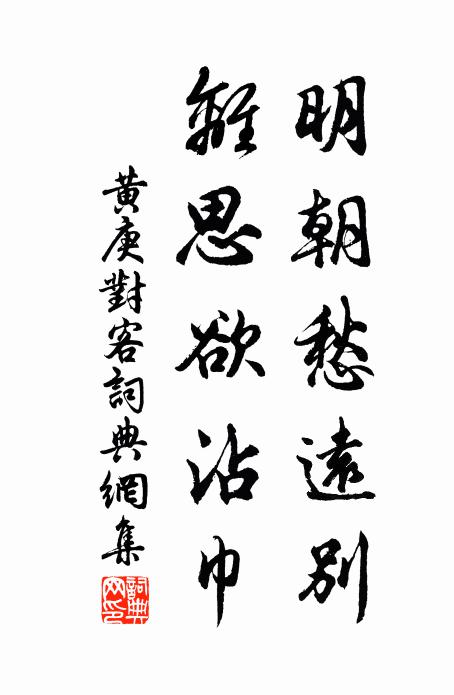 明朝愁遠別
離思欲沾巾
黃庚對客詞典網集
詞典网印